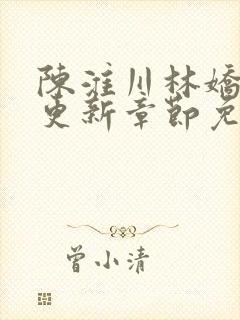 陳淮川林嬌
更新章節免
曾小清